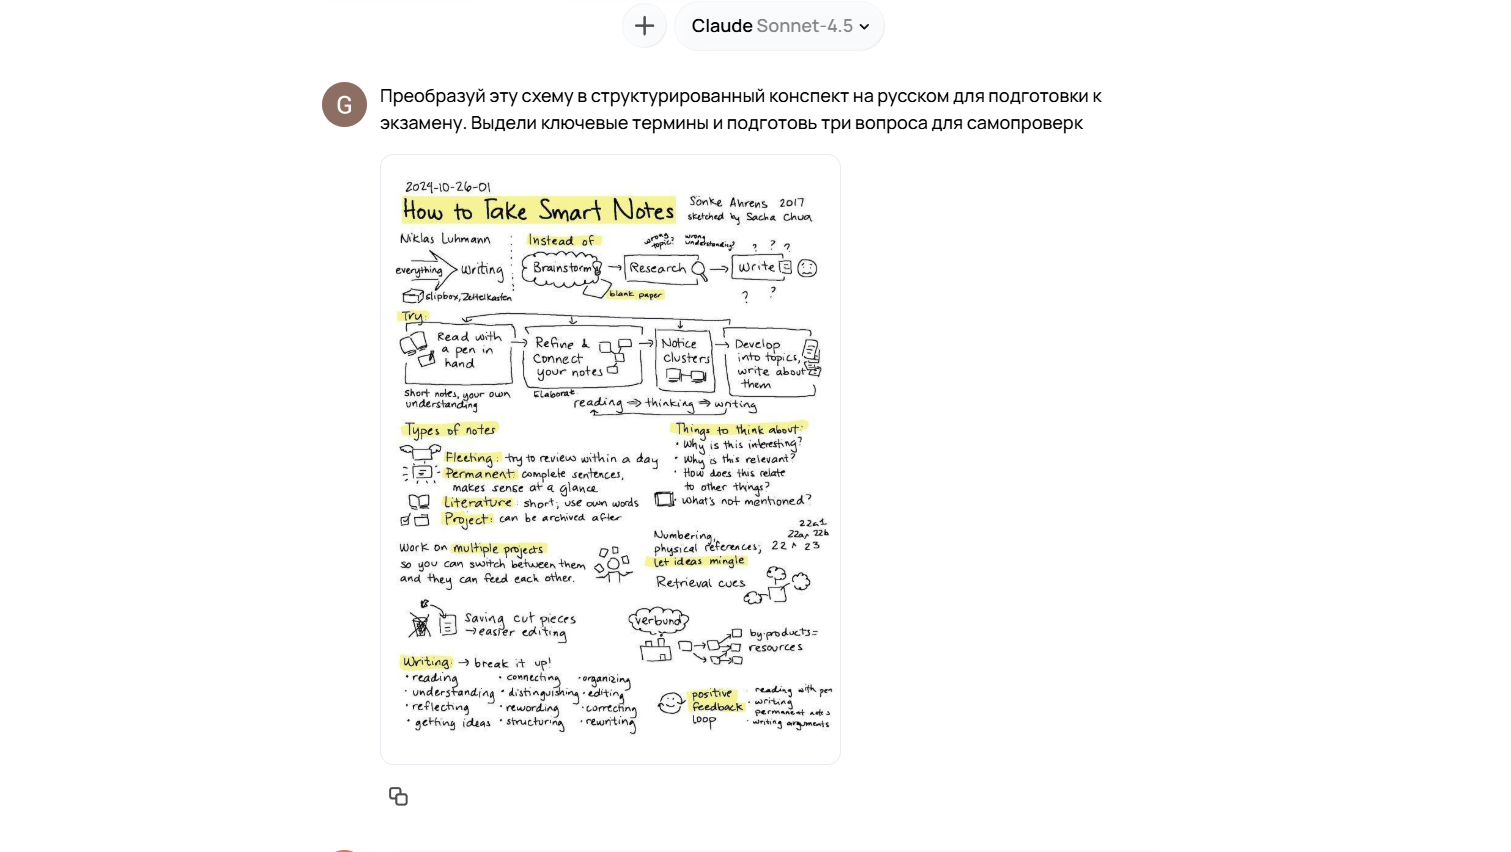 Claude Sonnet-4.5
G
Преобразуй эту схему в структурированный конспект на русском для подготовки к
экзамену. Выдели ключевые термины и подготовь три вопроса для самопроверк
2024-10-26-01
How to Take Smart Notes
Sönke Ahrens 2017
sketched by Sacha Chua
Niklas Luhmann
everything
writing
slipbox, Zettelkasten
Instead of
Brainstorm
blank paper
wrong topic?
Research
wrong
understanding?
? ? ?
Write
? ?
Try:
Read with
a pen in
hand
short notes, your own
understanding
Refine &
Connect
your notes
Elaborat
Notice
clusters
Develop
into topics,
write about
them
reading ⇒ thinking ⇒ writing
Types of notes
Fleeting: try to review within a day
Permanent: complete sentences,
makes sense at a glance
Literature: short; use own words
Project: can be archived after
Things to think about:
• Why is this interesting?
• Why is this relevant?
• How does this relate
to other things?
• What's not mentioned?
Work on multiple projects
so you can switch between them
and they can feed each other.
Numbering,
physical references;
let ideas mingle
22a1
22a 22b
22 23
Retrieval cues
Saving cut pieces
→ easier editing
verbund
by-products =
resources
Writing: → break it up!
• reading • connecting • organizing
• understanding • distinguishing • editing
• reflecting • rewording • correcting
• getting ideas • structuring • rewriting
positive
feedback
loop
reading with pen
• writing
permanent notes
• writing arguments